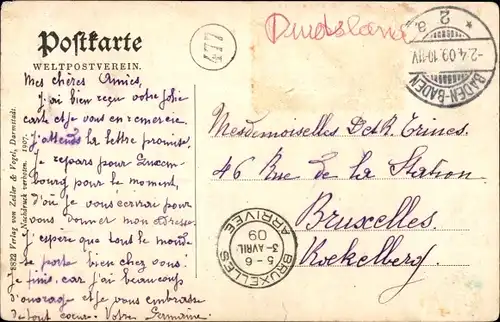 Postkarte
WELTPOSTVEREIN.
477
Duitsland
* 2 a.
-2.4.09.10-11V.
BADEN-BADEN
Mes chères Amies,
j'ai bien reçu votre jolie
carte et je vous en remercie.
J'attends la lettre promise.
Je repars pour Luxem-
bourg pour le moment,
d'où je vous
vous donner mon adresse.
J'espère que tout le monde
se porte bien chez vous.
Je finis, car j'ai beaucoup
d'ouvrage et je vous embrasse
de tout coeur. Votre Germaine.
8822 Verlag von Zedler & Vogel, Darmstadt.
Nachdruck verboten. 1907.
Mesdemoiselles D et R
46 Rue de la Station
Bruxelles
Koekelberg.
BRUXELLES
5-6
3-AVRIL
09
ARRIVEE